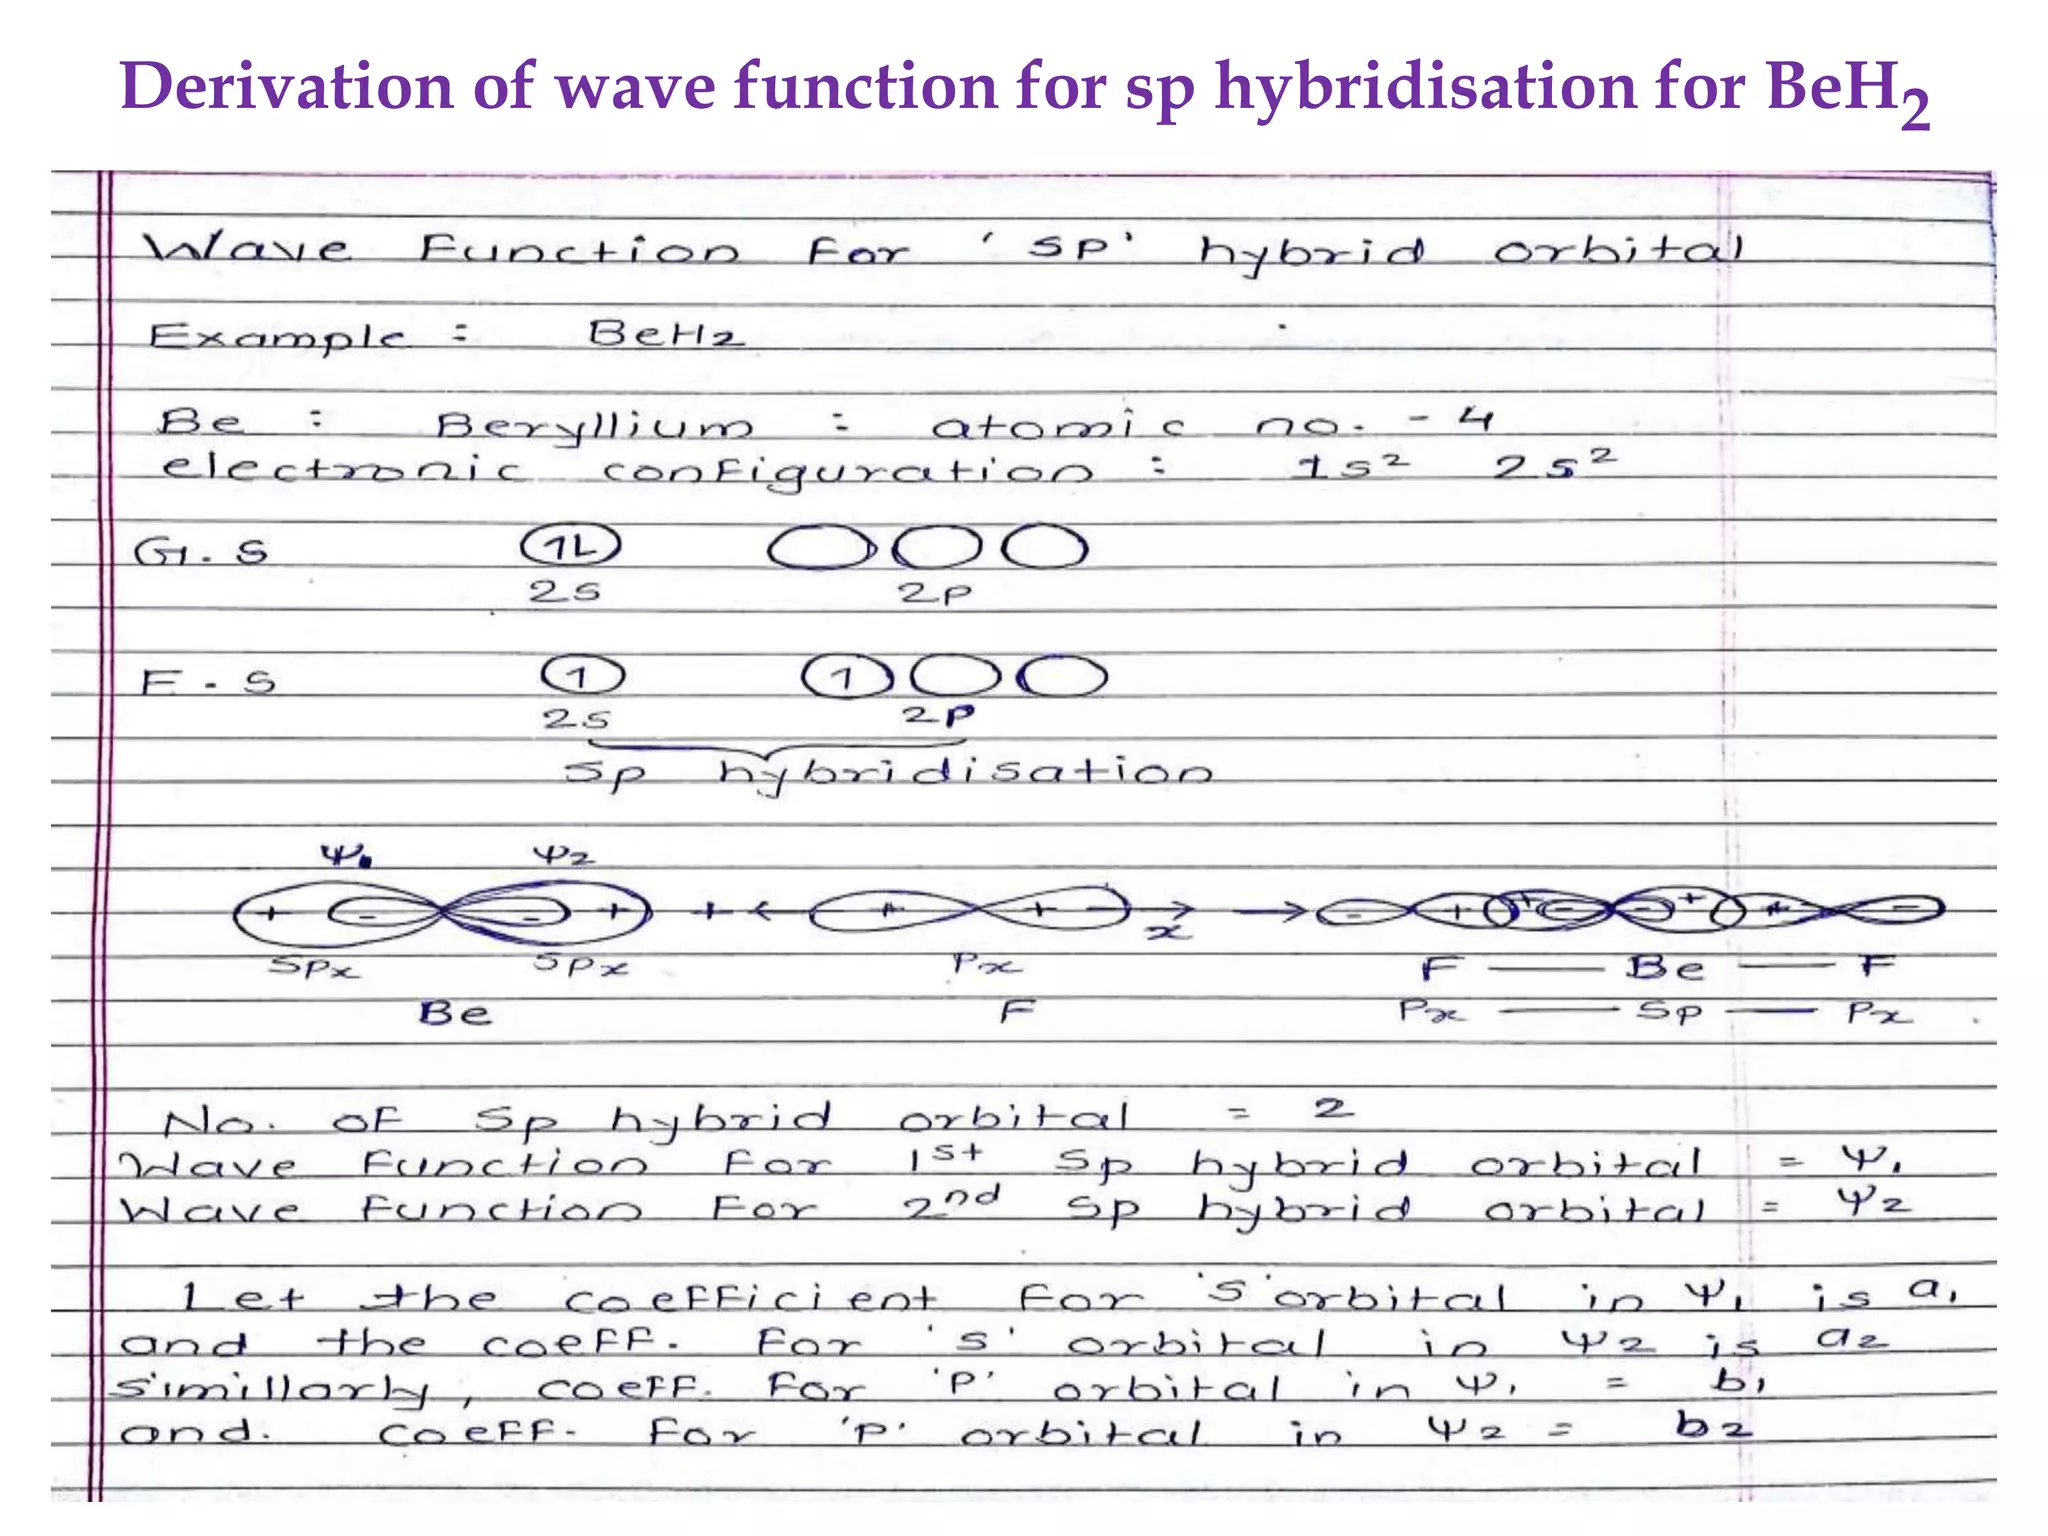 Derivation of wave function for sp hybridisation for BeH2
Wave Function For 'SP' hybrid orbital
Example : BeH2
Be : Beryllium : atomic no. - 4
electronic configuration : 1s2 2s2
G.S 1L
2s 2p
E.S 1 1
2s 2p
Sp hybridisation
Ψ1 Ψ2
+ - - + + + + - x → - + + - - + + -
SPx SPx Px F — Be — F
Be F Px — Sp — Px
No. of Sp hybrid orbital = 2
Wave Function For 1st Sp hybrid orbital = Ψ1
Wave Function For 2nd Sp hybrid orbital = Ψ2
Let the coefficient For 'S' orbital in Ψ1 is a1
and the coeff. For 's' orbital in Ψ2 is a2
Simillarly, coeff. For 'P' orbital in Ψ1 = b1
and. coeff. For 'P' orbital in Ψ2 = b2